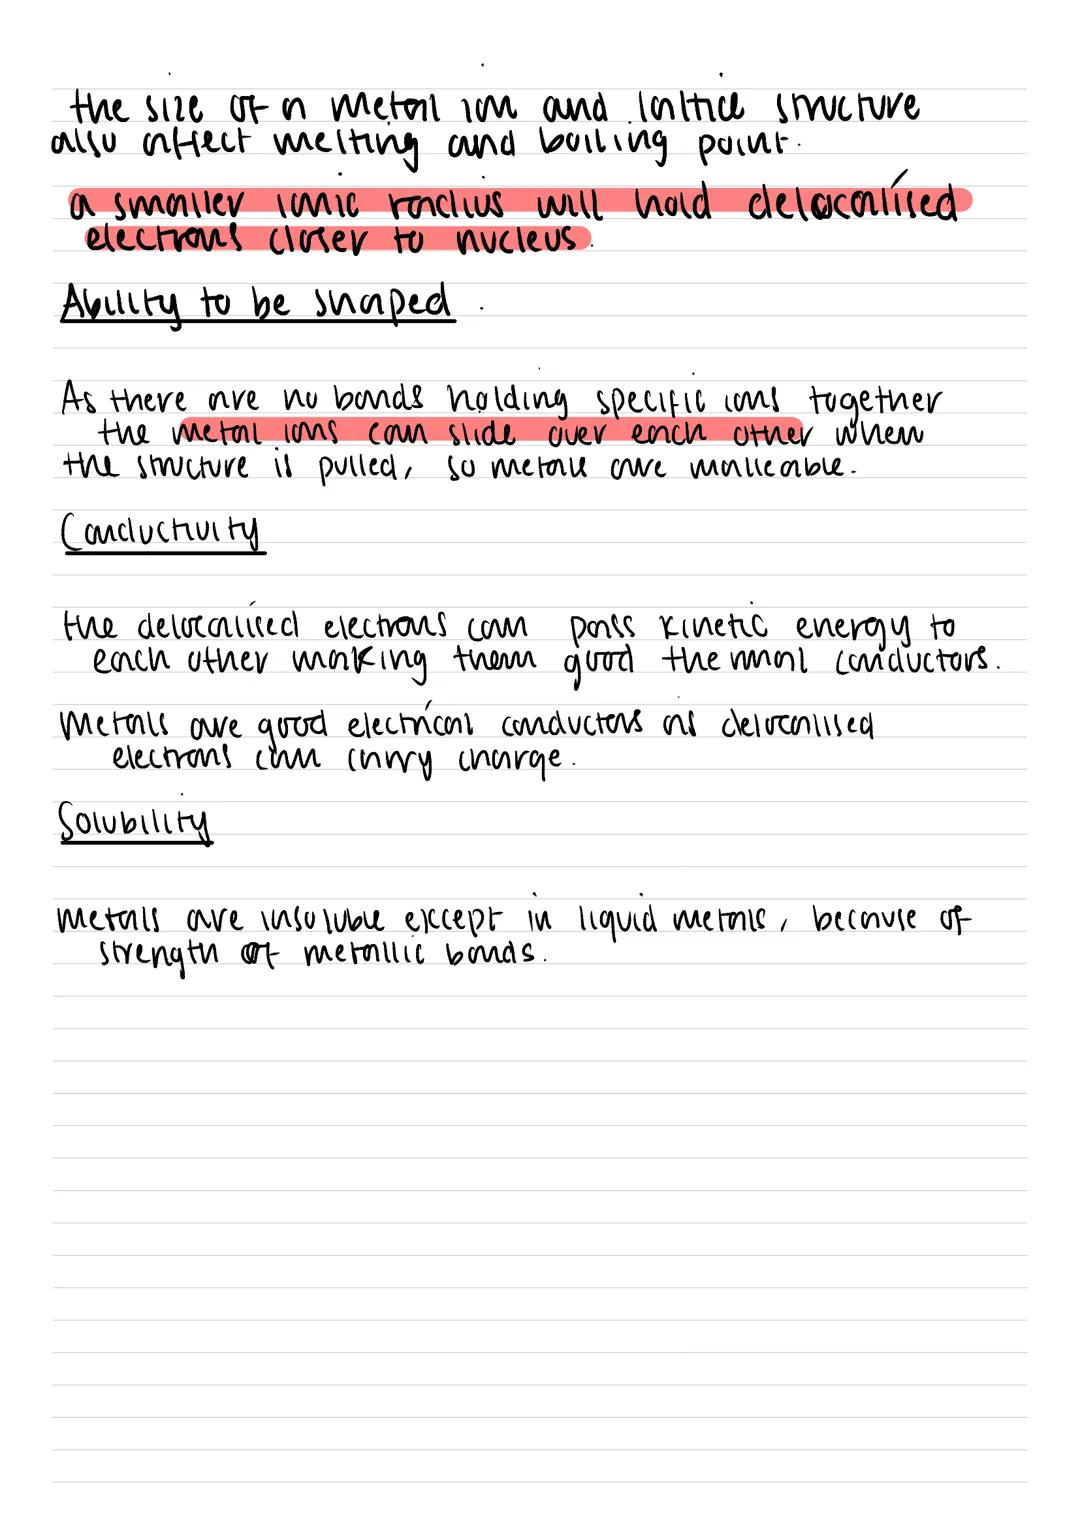 the size of a metal ion and lattice structure
also affect melting and boiling point.
a smaller ionic radius will hold delocalised
electrons closer to nucleus.
Ability to be shaped.
As there are no bonds holding specific ions together
the metal ions can slide over each other when
the structure is pulled, so metals are malleable.
Conductivity
the delocalised electrons can pass kinetic energy to
each other making them good thermal conductors.
Metals are good electrical conductors as delocalised
electrons can carry charge.
Solubility
metals are insoluble except in liquid metals, because of
strength of metallic bonds.